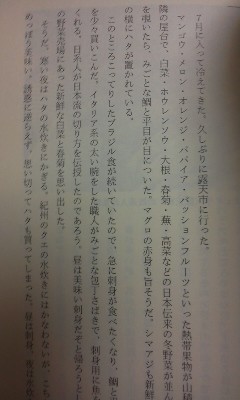 ７月に入って冷えてきた。久しぶりに露天市に行った。
マンゴウ・メロン・オレンジ・パパイア・パッションフルーツといった熱帯果物が山積
隣の屋台で、白菜・ホウレンソウ・大根・春菊・蕪・高菜などの日本伝来の冬野菜が並ん
を覗いたら、みごとな鯛と平目が目についた。マグロの赤身も旨そうだ。シマアジも新鮮
の横にハタが置かれている。
このところこってりしたブラジル食が続いていたので、急に刺身が食べたくなり、鯛と
を少々買いこんだ。イタリア系の太い腕をした職人がみごとな包丁さばきで、刺身用に
くれる。日系人が日本流の切り方を伝授したのであろう。昼は美味い刺身だぞと帰ろうとし
の野菜売場にあった新鮮な白菜と春菊を思い出した。
そうだ、寒い夜はハタの水炊きにかぎる。紀州のクエの水炊きにはかなわないが、こち
あっぱれ美味い。誘惑に逆らえず、思い切ってハタも買ってしまった。昼は刺身、夜は水炊